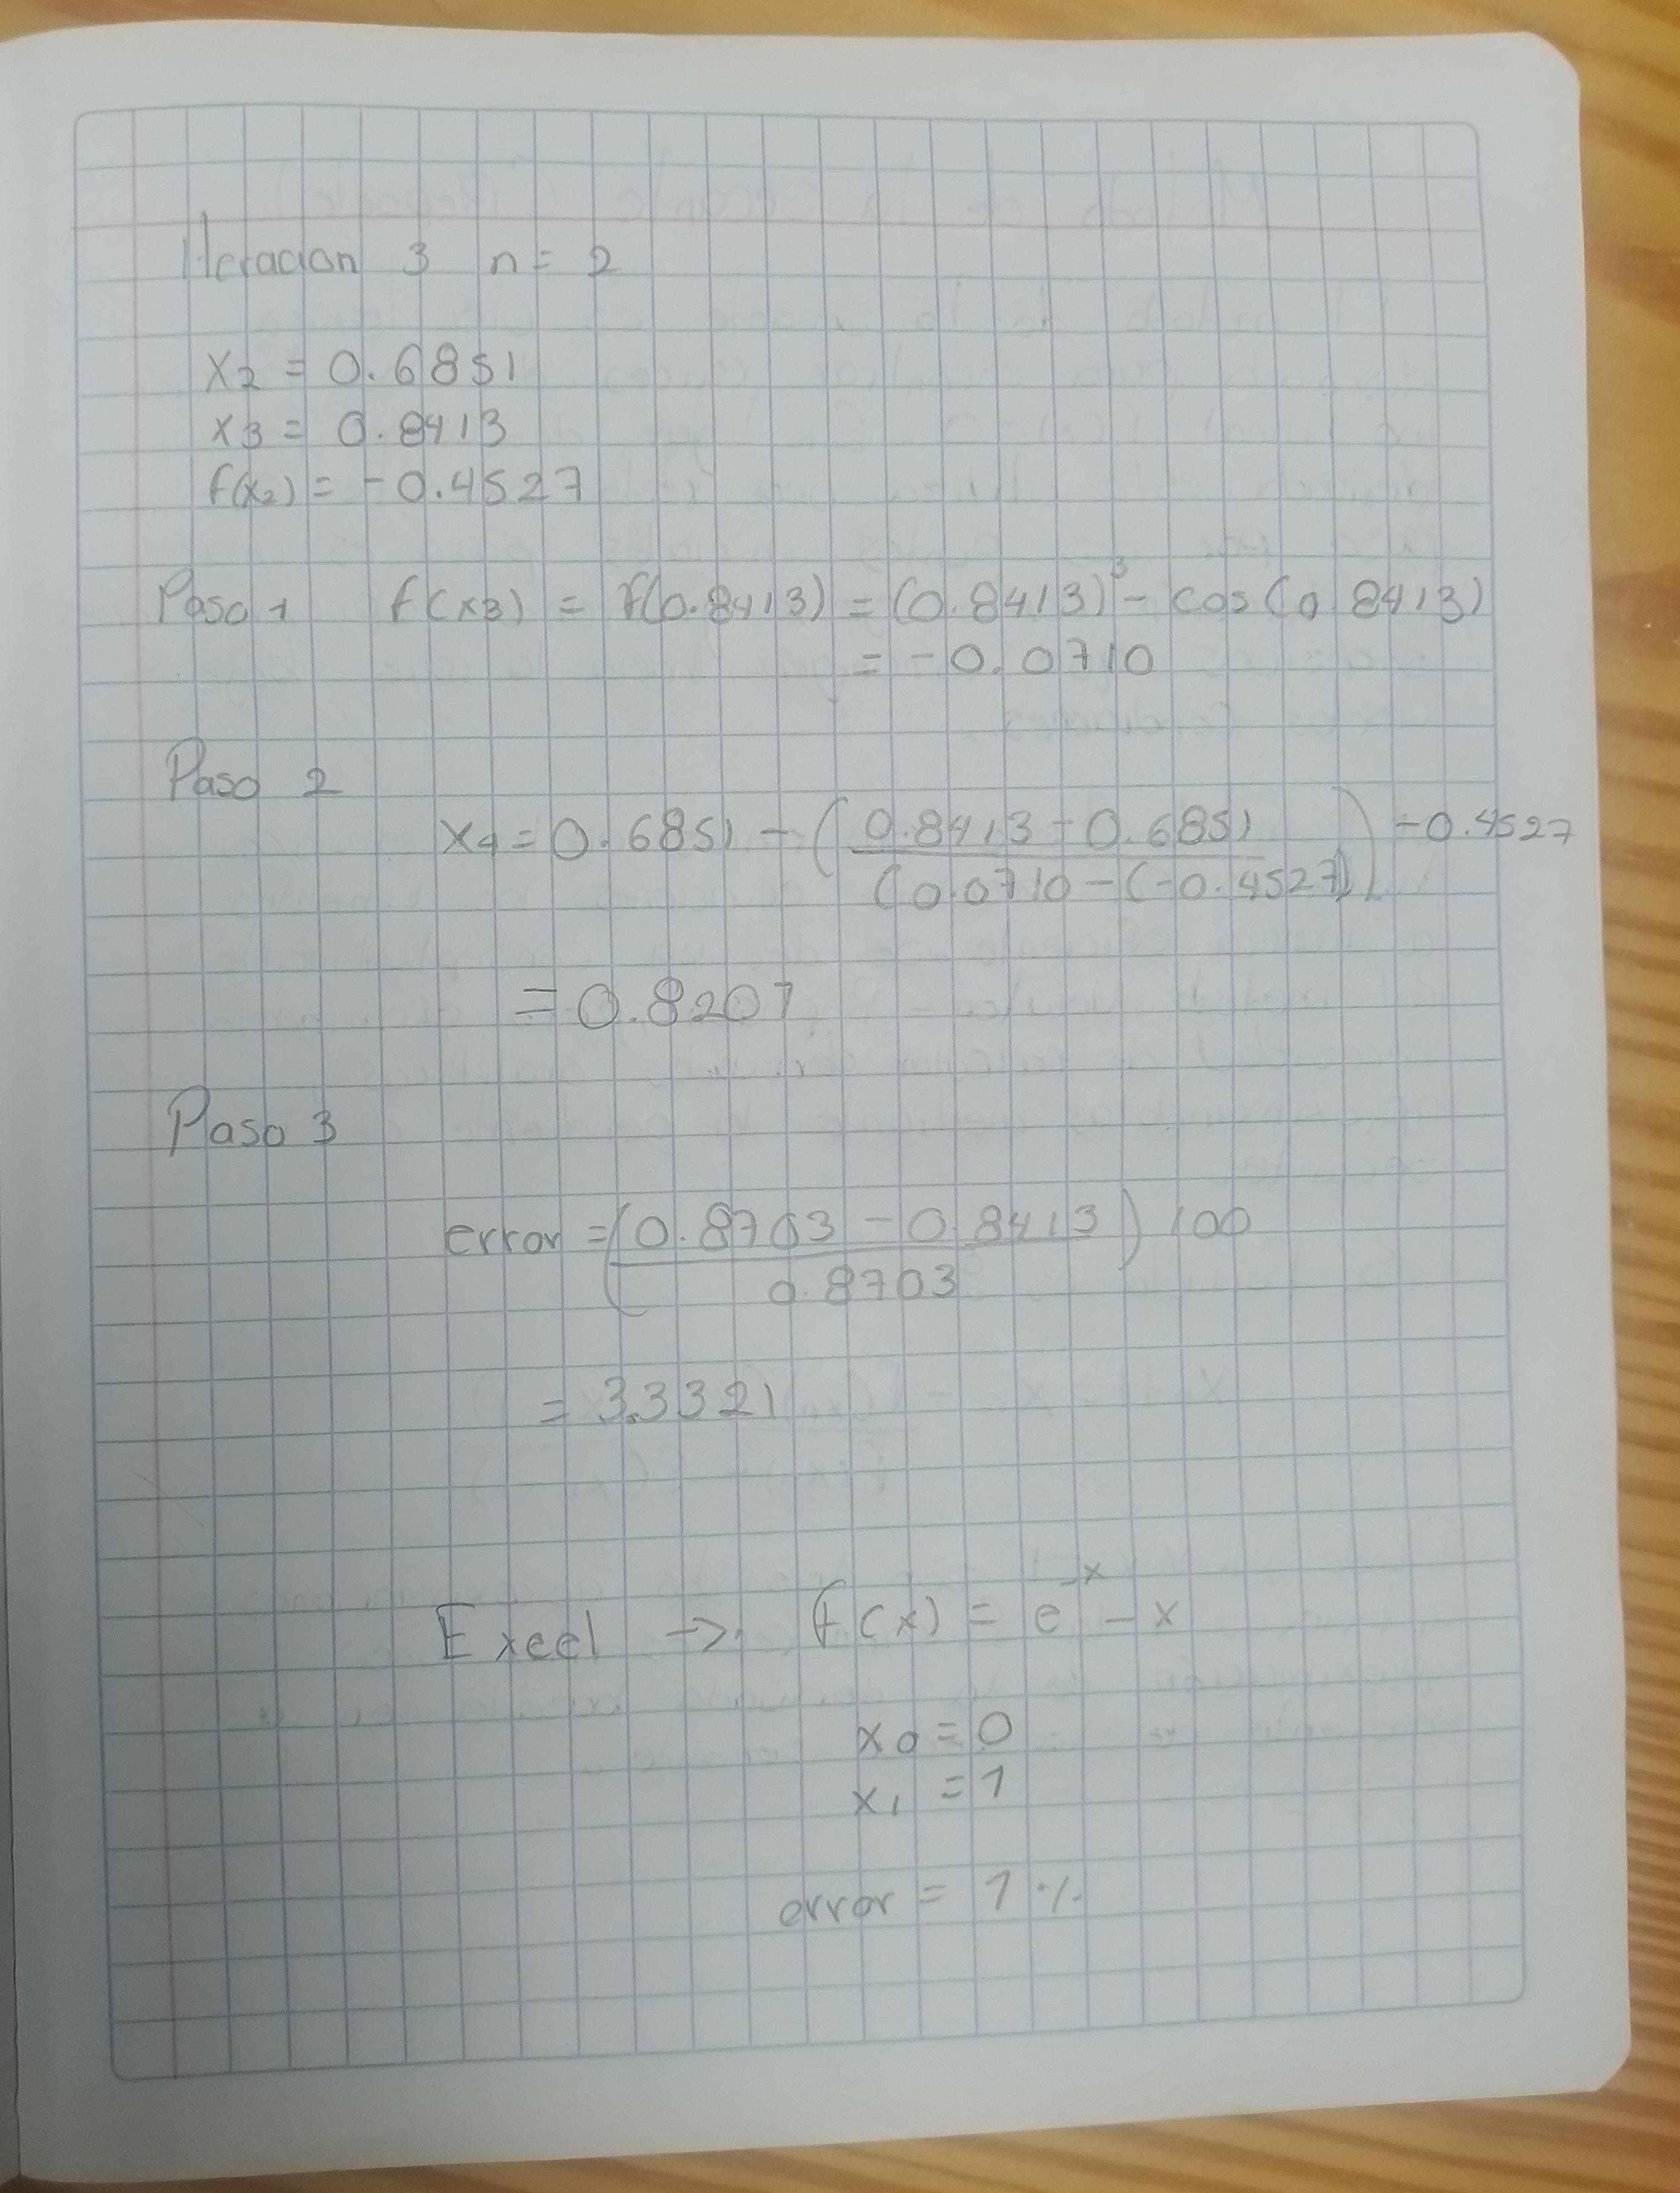 Iteracion 3 n = 2
x2 = 0.6851
x3 = 0.8413
f(x2) = -0.4527
Paso 1 f(x3) = f(0.8413) = (0.8413)³ - cos(0.8413)
= -0.0710
Paso 2
x4 = 0.6851 - ( 0.8413 - 0.6851 ) -0.4527
(0.0710 - (-0.4527))
= 0.8207
Paso 3
error = ( 0.8703 - 0.8413 ) 100
0.8703
= 3.3321
Exeel -> f(x) = e^-x - x
x0 = 0
x1 = 1
error = 1 %